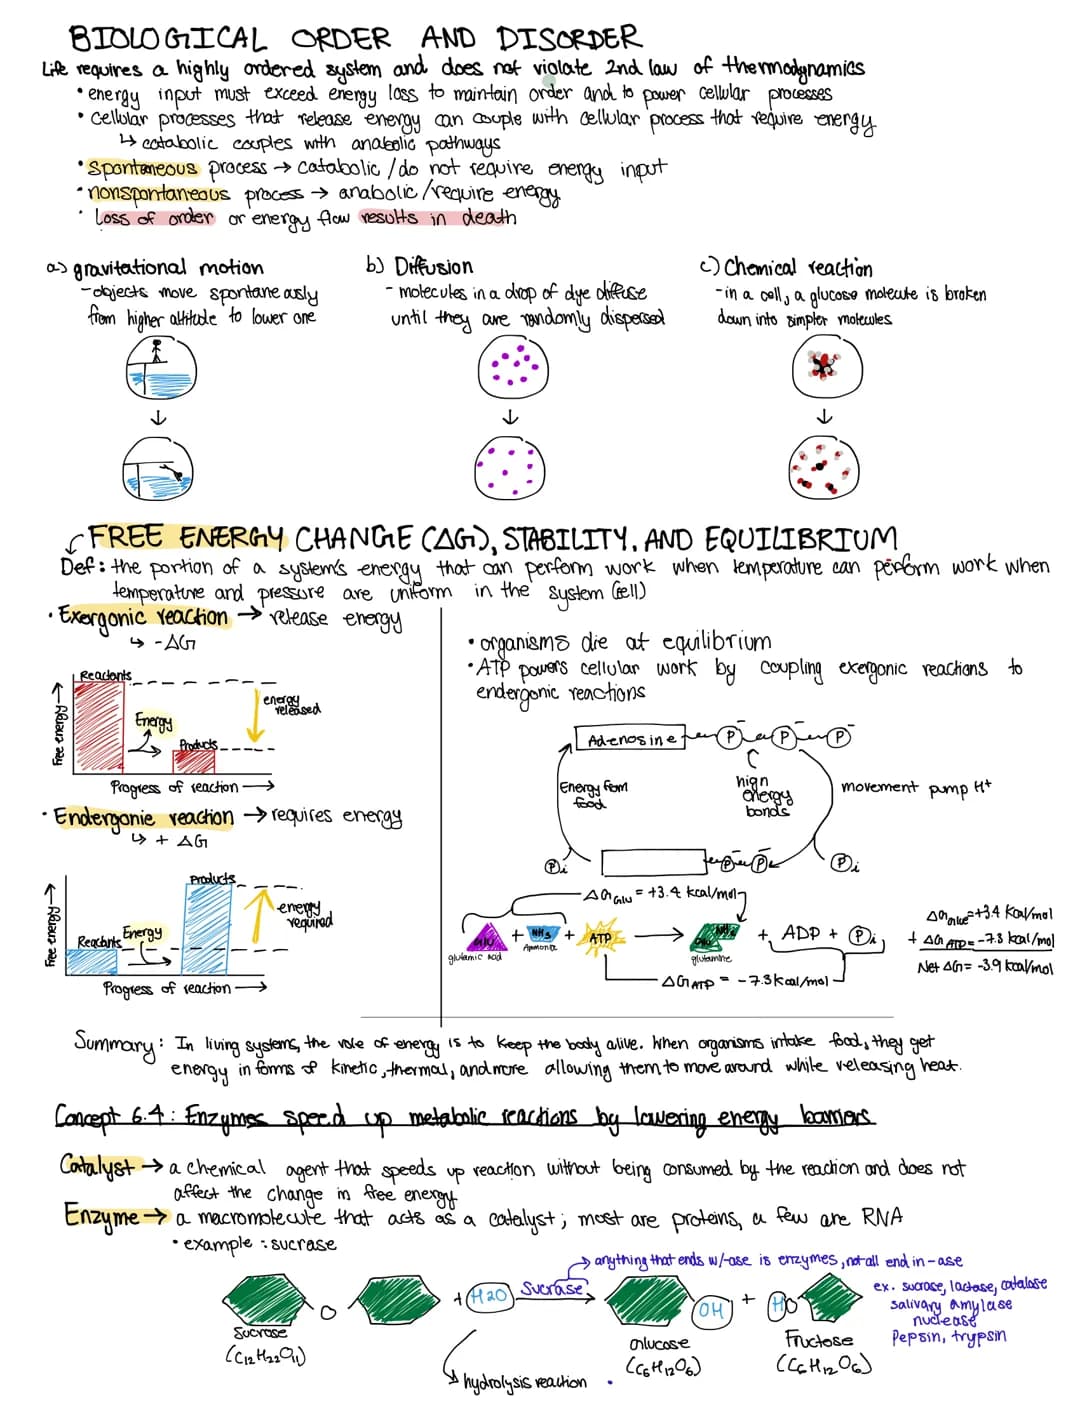 BIOLOGICAL ORDER AND DISORDER
Life requires a highly ordered system and does not violate 2nd law of thermodynamics
• energy input must exceed energy loss to maintain order and to power cellular processes
• cellular processes that release energy can couple with cellular process that require energy
↳ catabolic couples with anabolic pathways
• spontaneous process → catabolic / do not require energy input
• nonspontaneous process → anabolic / require energy
• loss of order or energy flow results in death
a) gravitational motion
- objects move spontaneously
from higher altitude to lower one
b) Diffusion
- molecules in a drop of dye diffuse
until they are randomly dispersed
c) Chemical reaction
- in a cell, a glucose molecule is broken
down into simpler molecules
FREE ENERGY CHANGE (ΔG), STABILITY, AND EQUILIBRIUM
Def: the portion of a system's energy that can perform work when temperature can perform work when
temperature and pressure are uniform in the system (cell)
• Exergonic reaction → release energy
↳ -ΔG
Reactants
energy released
Energy
Products
Free energy →
Progress of reaction →
• Endergonic reaction → requires energy
↳ + ΔG
Products
energy required
Energy
Reactants
Free energy →
Progress of reaction →
• organisms die at equilibrium
• ATP powers cellular work by coupling exergonic reactions to
endergonic reactions
Adenosine P P P
Energy from food
high energy bonds
movement pump H+
Pi P P Pi
ΔG Glu = +3.4 kcal/mol
Glu + NH3 + ATP → NH2 Glu + ADP + Pi
glutamic acid Ammonia glutamine
ΔG ATP = -7.3 kcal/mol
ΔG Glu = +3.4 kcal/mol
+ ΔG ATP = -7.3 kcal/mol
Net ΔG = -3.9 kcal/mol
Summary: In living systems, the role of energy is to keep the body alive. When organisms intake food, they get
energy in forms of kinetic, thermal, and more allowing them to move around while releasing heat.
Concept 6.4: Enzymes speed up metabolic reactions by lowering energy barriers
Catalyst → a chemical agent that speeds up reaction without being consumed by the reaction and does not
affect the change in free energy
Enzyme → a macromolecule that acts as a catalyst; most are proteins, a few are RNA
• example: sucrase
→ anything that ends w/-ase is enzymes, not all end in -ase
ex. sucrase, lactase, catalase
salivary amylase
nuclease
Pepsin, trypsin
O + H2O Sucrase → OH + HO
Sucrose
(C12H22O11)
Glucose
(C6H12O6)
Fructose
(C6H12O6)
↳ hydrolysis reaction